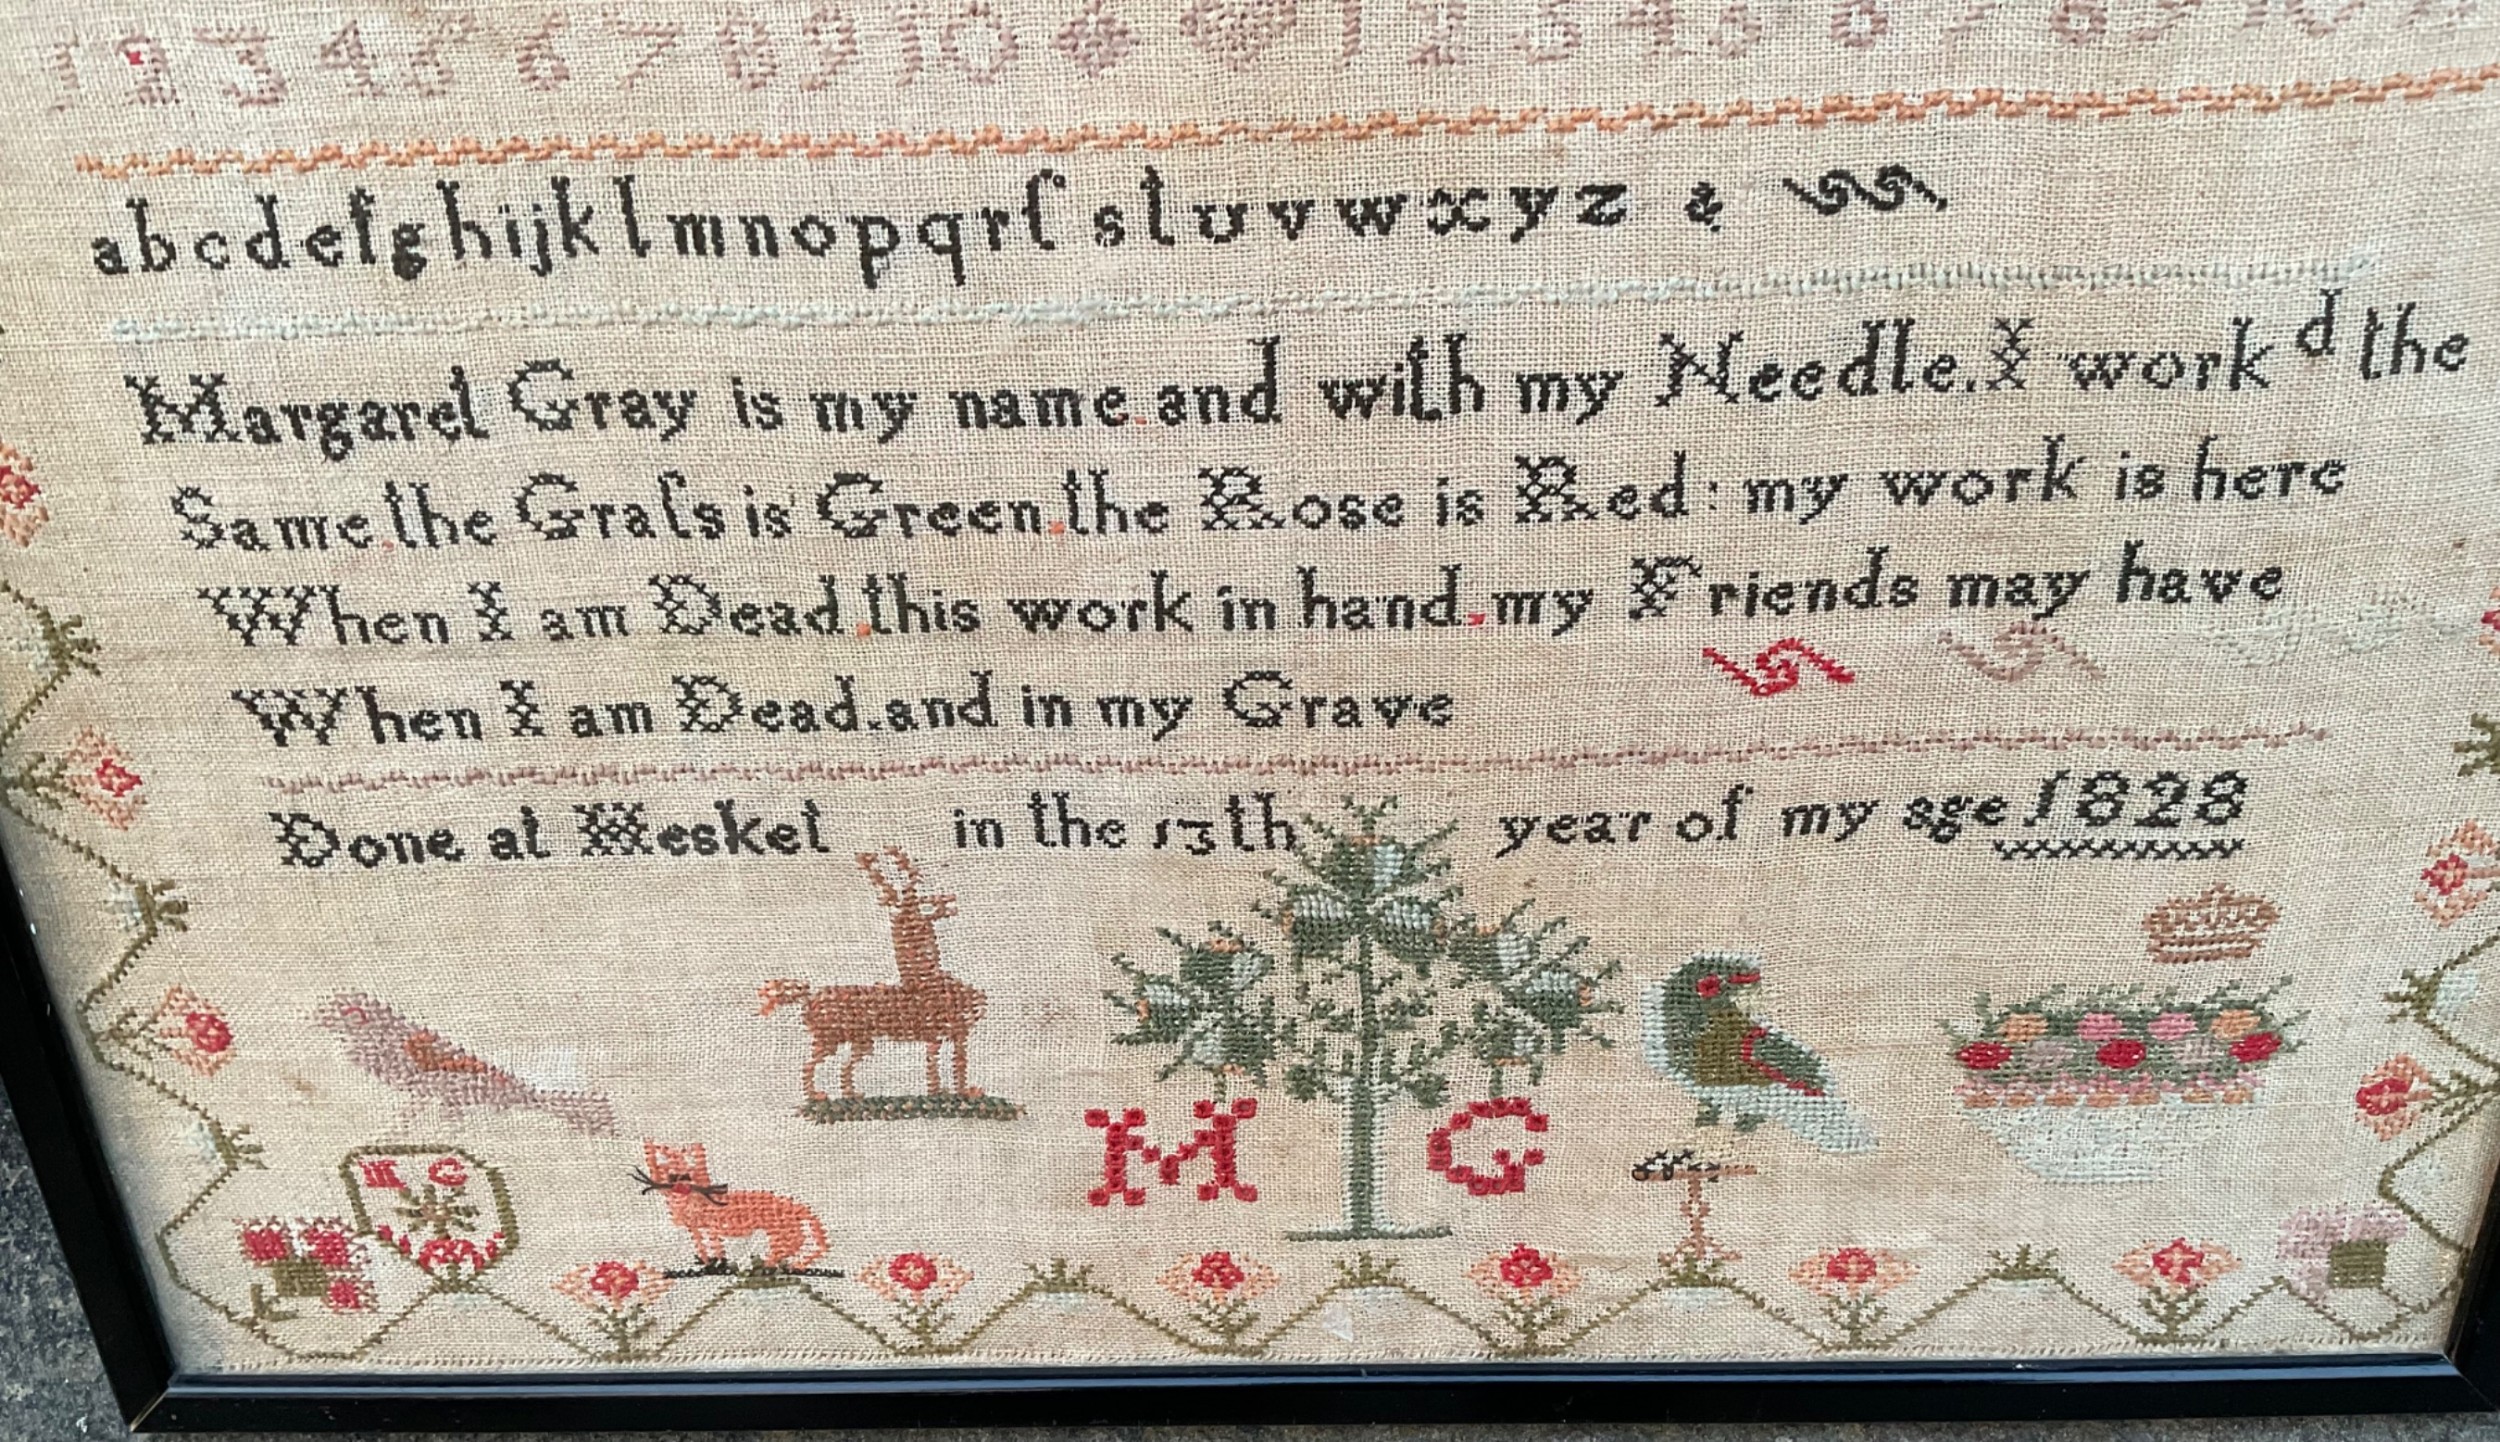 1 2 3 4 5 6 7 8 9 10 1 2 3 4 5 6 7 8 9 10
abcdefghijklmnopqrſstuvwxyz &
Margaret Gray is my name.and with my Needle.I work d the
Same.the Graſs is Green.the Rose is Red: my work is here
When I am Dead.this work in hand.my Friends may have
When I am Dead.and in my Grave
Done at Hesket in the 13th year of my age 1828
M G
M G